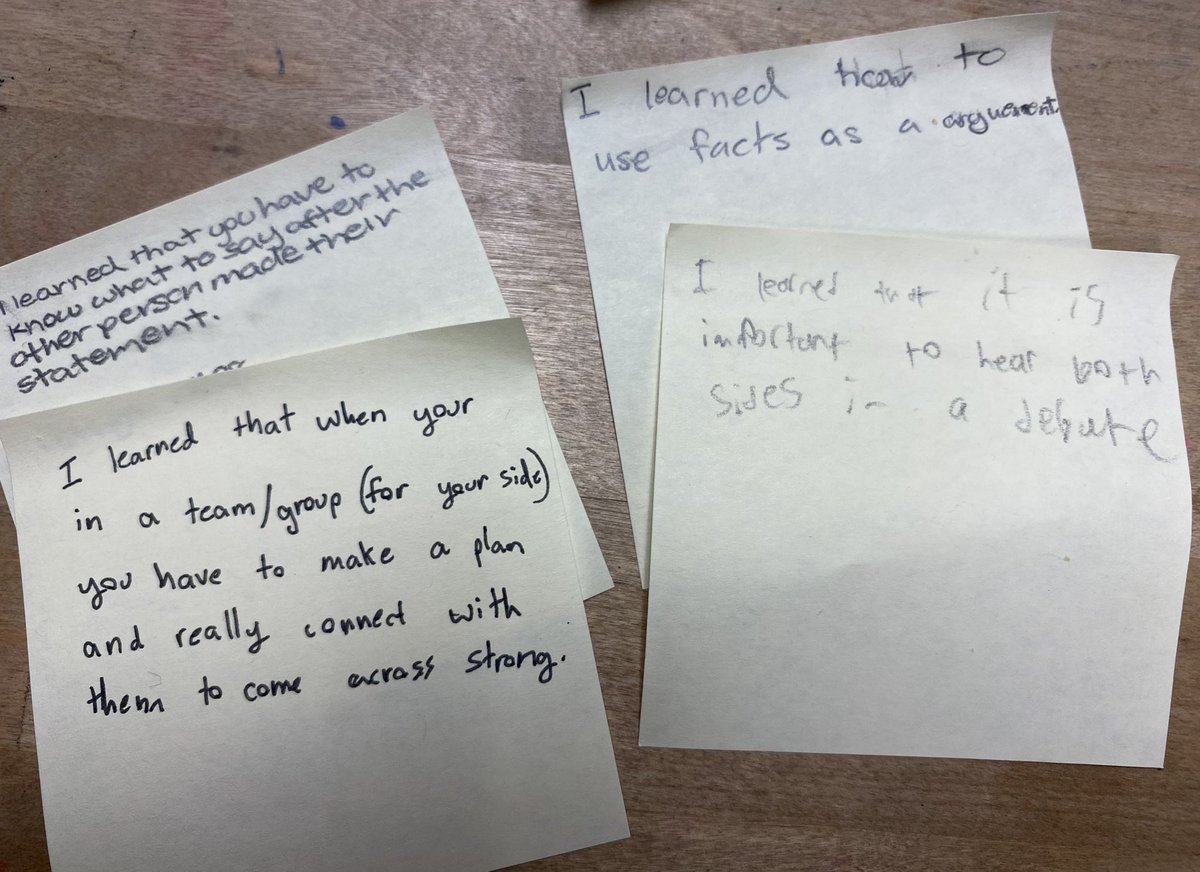 I learned that you have to
know what to say after the
other person made their
statement.
I learned that when your
in a team/group (for your side)
you have to make a plan
and really connect with
them to come across strong.
I learned to
use facts as a arguement
I learned that it is
important to hear both
sides in a debate